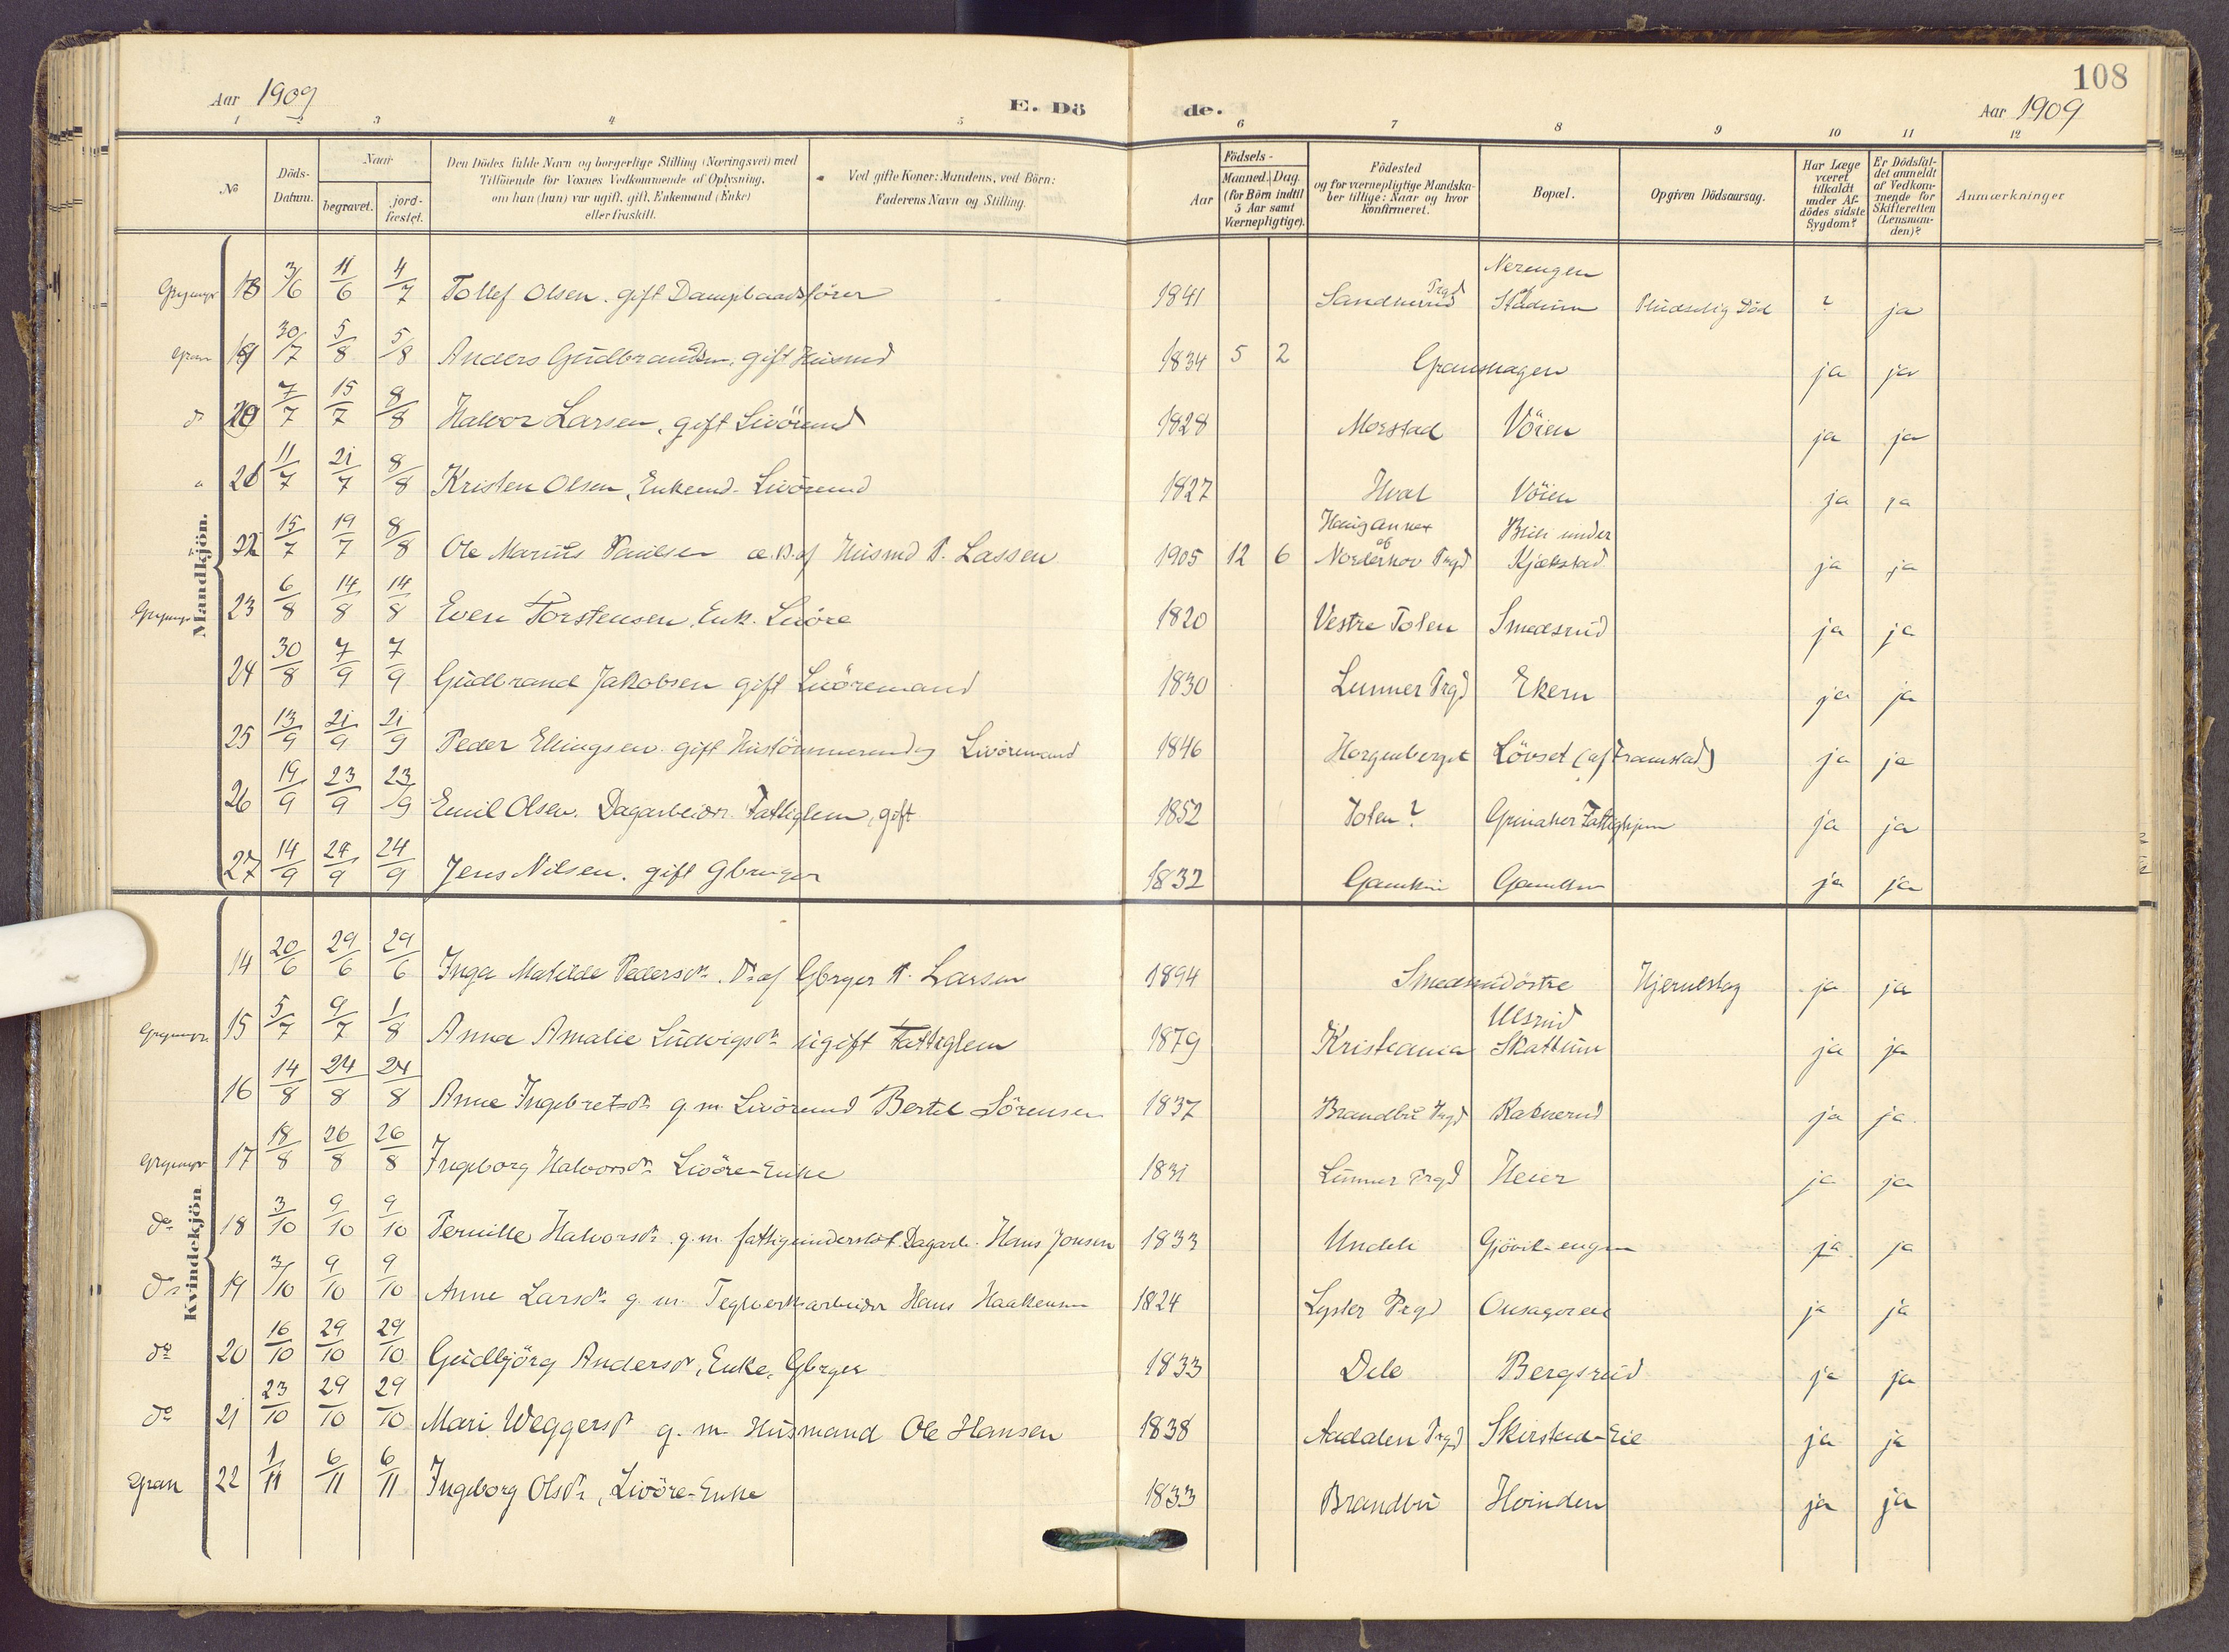 108
Aar 1909 E. Dö de. Aar 1909
1 2 3 4 5 6 7 8 9 10 11 12
No
Döds-Datum.
Naar
begravet.
jord-fæstet.
Den Dödes fulde Navn og borgerlige Stilling (Næringsvei) med
Tilföiende for Voxnes Vedkommende af Oplysning,
om han (hun) var ugift, gift, Enkemand (Enke)
eller fraskilt.
Ved gifte Koner: Mandens, ved Börn:
Faderens Navn og Stilling.
Aar
Födsels-
Maaned. Dag.
(for Börn indtil
5 Aar samt
Værnepligtige).
Födested
og for værnepligtige Mandska-
ber tillige: Naar og hvor
konfirmeret.
Bopæl.
Opgiven Dödsaarsag.
Har Læge
været
tilkaldt
under Af-
dödes sidste
Sygdom?
Er Dödsfal-
det anmeldt
af Vedkom-
mende for
Skifteretten
(Lensman-
den)?
Anmærkninger
Mandkjön.
18 3/6 11/6 4/7 Tollef Olsen. gift Dampbaadsförer 1841 Prgd Nerengen Pludselig Död ? ja
Gran 19 30/7 5/8 5/8 Anders Gudbrandsen, gift Husmd 1834 5 2 Granshagen ja ja
do 20 7/7 15/7 8/8 Halvor Larsen, gift Livöremd 1828 Morstad Vöien ja ja
" 21 11/7 21/7 8/8 Kristen Olsen, Enkemd. Livöremd 1827 Hval Vöien ja ja
22 15/7 19/7 8/8 Ole Marius Paulsen æ. B. af Husmd P. Lassen 1905 12 6 Haug Annex af Norderhov Prgd Blili under Kjækstad ja ja
23 6/8 14/8 14/8 Even Torstensen, Enk. Livöre 1820 Vestre Toten Smedsrud ja ja
24 30/8 7/9 7/9 Gudbrand Jakobsen gift Livöremand 1830 Lunner Prgd Ekern ja ja
25 13/9 21/9 21/9 Peder Ellingsen. gift Hustömmermd og Livöremand 1846 Horgenberget Lövset (af Framstad) ja ja
26 19/9 23/9 23/9 Emil Olsen. Dagarbeider. Fattiglem, gift 1852 Toten? Grinaker Fattighjem ja ja
27 14/9 24/9 24/9 Jens Nilsen. gift Gbruger 1832 ja ja
Kvindekjön
14 20/6 29/6 29/6 Inga Matilde Pedersdr. Dr. af Gbrger P. Larsen 1894 Smedsrud östre Hjerneslag ja ja
15 5/7 9/7 1/8 Anna Amalie Ludvigsdr ugift Fattiglem 1879 Kristiania Ulsrud Skattum ja ja
16 14/8 24/8 24/8 Anne Ingebretsdr g. m. Livöremd Bertel Sörensen 1837 Brandbu Prgd ja ja
17 18/8 26/8 26/8 Ingeborg Halvorsdr. Livöre-Enke 1831 Lunner Prgd Heier ja ja
do 18 3/10 9/10 9/10 Pernille Halvorsdr. g. m. fattigunderstöt. Dagarb. Hans Jonsen 1833 Undeli Gjövik-engen ja ja
do 19 3/10 9/10 9/10 Anne Larsdr g. m. Teglverksarbeider Hans Haakensen 1824 Lyster Prgd ja ja
do 20 16/10 29/10 29/10 Gudbjörg Andersdr, Enke, Gbrger 1833 Dele Bergsrud ja ja
do 21 23/10 29/10 29/10 Mari Weggersdr g. m. Husmand Ole Hansen 1838 Aadalen Prgd Skirstad-Eie ja ja
Gran 22 1/11 6/11 6/11 Ingeborg Olsdr, Livöre-Enke 1833 Brandbu Hvinden ja ja